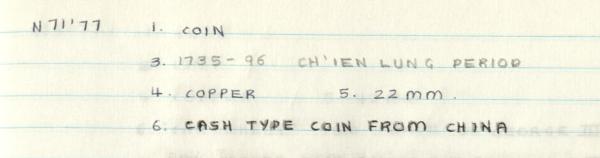 N71'77 1. COIN
3. 1735-96 CH'IEN LUNG PERIOD
4. COPPER 5. 22mm.
6. CASH TYPE COIN FROM CHINA